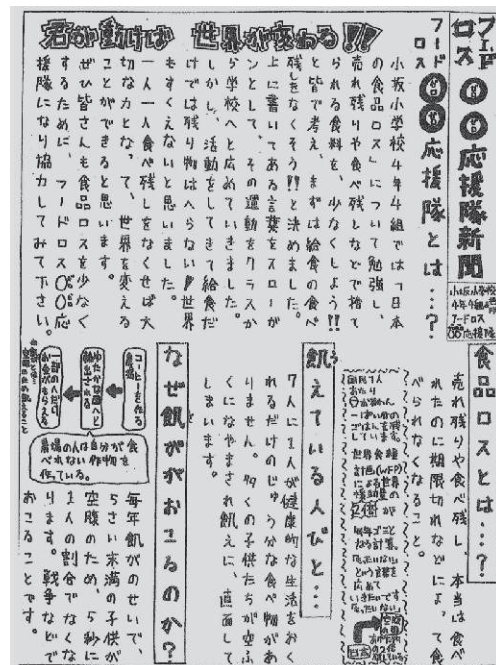 フードロス〇〇応援隊新聞
小坂小学校
4年4組
フードロス
〇〇応援隊
君が動けば 世界が変わる!!
フードロス〇〇応援隊とは…?
小坂小学校4年4組では「日本
の食品ロス」について勉強し、
売れ残りや食べ残しなどで捨て
られる食料を、少なくしよう!!
と皆で考え、まずは給食の食べ
残しをなくそう!!と決めました。
上に書いてある言葉をスローガ
ンとして、その運動をクラスか
ら学校へと広めていきました。
しかし、活動をしてきて給食だ
けでは残り物はへらない!世界
もすくえないと思いました。
一人一人食べ残しをなくせば大
切な力となって、世界を変える
ことができると思います。
ぜひ皆さんも食品ロスを少なく
するために、フードロス〇〇応
援隊になり協力してみて下さい。
食品ロスとは…?
売れ残りや食べ残し、本当は食べ
れたのに期限切れなどによって食
べられなくなること。
国民1人
あたり
飢えている人びと…
7人に1人が健康的な生活をおく
れるだけのじゅう分な食べ物があ
りません。多くの子供たちが空ふ
くになやまされ飢えに、直面して
しまいます。
なぜ飢ががおこるのか?
毎年飢がのせいで、
5さい未満の子供が
空腹のため、5秒に
1人の割合でなくな
ります。戦争などで
おこることです。
コーヒーを作る
農場
ゆたかな国へと
輸出される
一部の人だけ
お金がもらえる
農場の人は自分が食
べれない作物を
作っている。